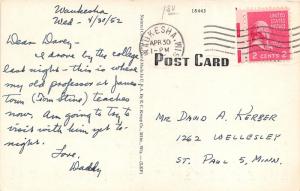 Waukesha
Wed - 4/30/52
Dear Davey -
I drove by the college
last night - this is where
my old professor at James-
town (Tom Stine) teaches
now. Am going to try to
visit with him yet to-
night.
Love,
Daddy
18443
WAUKESHA, WIS.
APR 30
1 - PM
POST CARD
2 CENTS 2
Mr. David A. Kerber
1262 Wellesley
St. Paul 5, Minn.